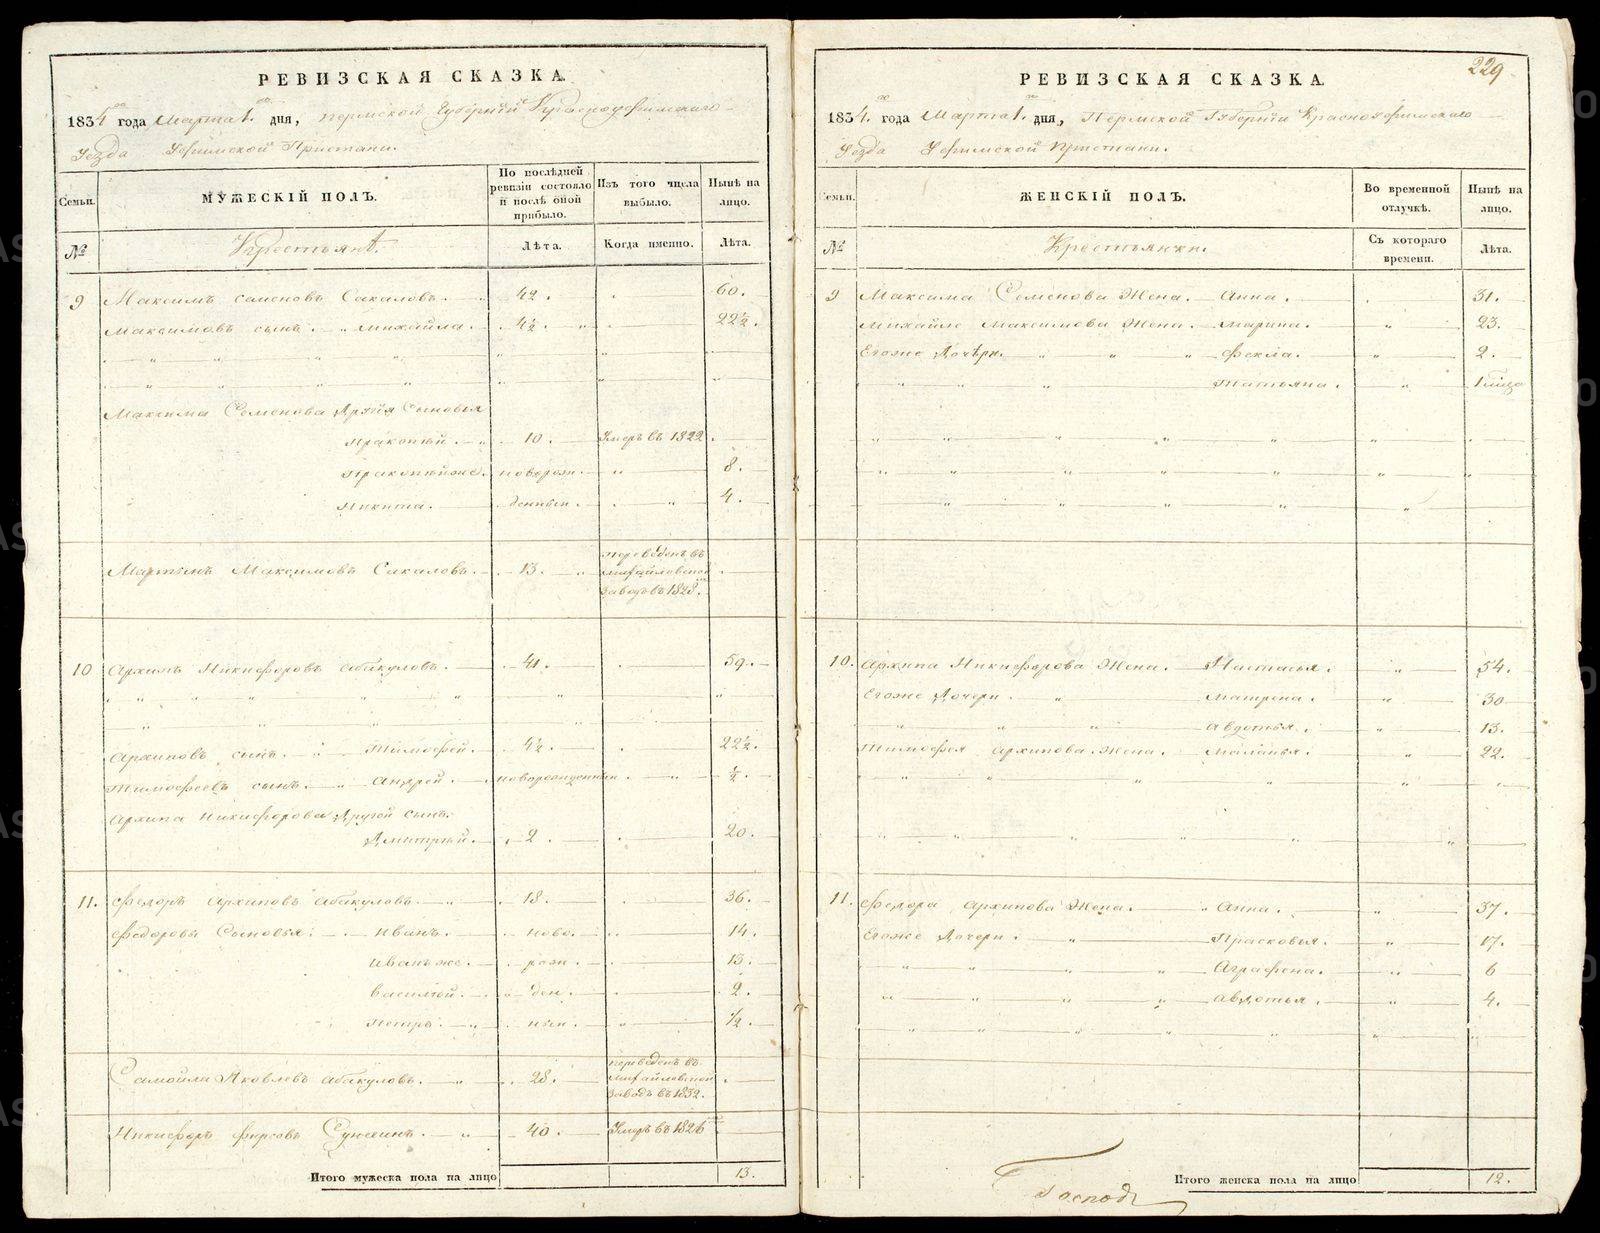 РЕВИЗСКАЯ СКАЗКА.
1834го года Марта 1го дня, Пермской Губернiи Красноуфимскаго
Уезда Уфимской Пристани.
Семьи. МУЖЕСКIЙ ПОЛЪ. По послѣдней ревизiи состояло и послѣ оной прибыло. Изъ того числа выбыло. Нынѣ на лицо.
№ Крестьянъ. Лѣта. Когда именно. Лѣта.
9 Максимъ Семеновъ Сакаловъ. 42. 60.
Максимовъ сынъ. Михайла. 4½ 22½.
Максима Семенова Другiя Сыновья
Пракопiй. 10. Умеръ въ 1822
Пракопiйже. новорож 8.
Никита. денныи. 4.
Мартынъ Максимовъ Сакаловъ. 13. Переведенъ въ Михайловской заводъ въ 1828.
10 Архипъ Никифоровъ Абакуловъ. 41. 59.
Архиповъ сынъ. Тимофей. 4½. 22½.
Тимофеевъ сынъ. Андрей. новорожденныи ½.
Архипа Никифорова Другой сынъ.
Дмитрiй. 2. 20.
11. Федоръ Архиповъ Абакуловъ. 18. 36.
Федоровы Сыновья: Иванъ. ново. 14.
Иванъже. рож. 13.
Василiй. ден. 2.
Петръ. ныи. 1/2.
Самойла Яковлевъ Абакуловъ. 28. переведенъ въ Михайловской заводъ въ 1832.
Никифоръ Фирсовъ 40. Умеръ въ 1826
Итого мужеска пола на лицо 13.
229
РЕВИЗСКАЯ СКАЗКА.
1834го года Марта 1го дня, Пермской Губернiи Красноуфимскаго
Уезда Уфимской Пристани.
Семьи. ЖЕНСКIЙ ПОЛЪ. Во временной отлучкѣ. Нынѣ на лицо.
№ Крестьянки. Съ котораго времени. Лѣта.
9 Максима Семенова Жена. Анна. 31.
Михайле Максимова Жена. Марина. 23.
Егоже Дочѣри. Фекла. 2.
Татьяна. 1
10. Архипа Никифорова Жена. Настасья. 54.
Егоже Дочери. Матрена. 30
Авдотья. 13.
Тимофея Архипова Жена. Маланья. 22.
11. Федора Архипова Жена. Анна. 37.
Егоже Дочери. Прасковья. 17.
Аграфена. 6
Авдотья. 4.
Итого женска пола на лицо 12.
Господъ